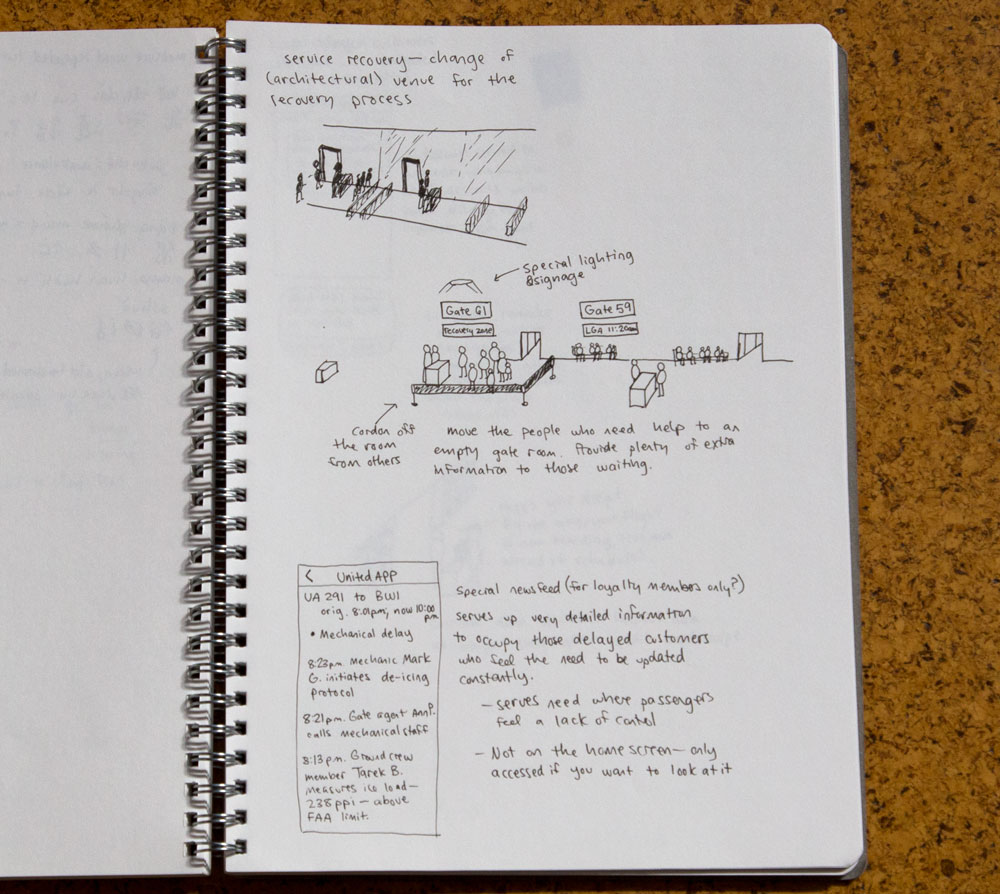 service recovery — change of
(architectural) venue for the
recovery process
special lighting
& signage
Gate 61
recovery zone
Gate 59
LGA 11:20am
cordon off
the room
from others
move the people who need help to an
empty gate room. Provide plenty of extra
information to those waiting.
< United APP
UA 291 to BWI
orig. 8:01pm; now 10:00
pm
• Mechanical delay
8:23pm. Mechanic Mark
G. initiates de-icing
protocol
8:21pm. Gate agent Ann P.
calls mechanical staff
8:13pm. Ground crew
member Tarek B.
measures ice load —
238 ppi — above
FAA limit.
special newsfeed (for loyalty members only?)
serves up very detailed information
to occupy those delayed customers
who feel the need to be updated
constantly.
— serves need where passengers
feel a lack of control
— Not on the home screen — only
accessed if you want to look at it